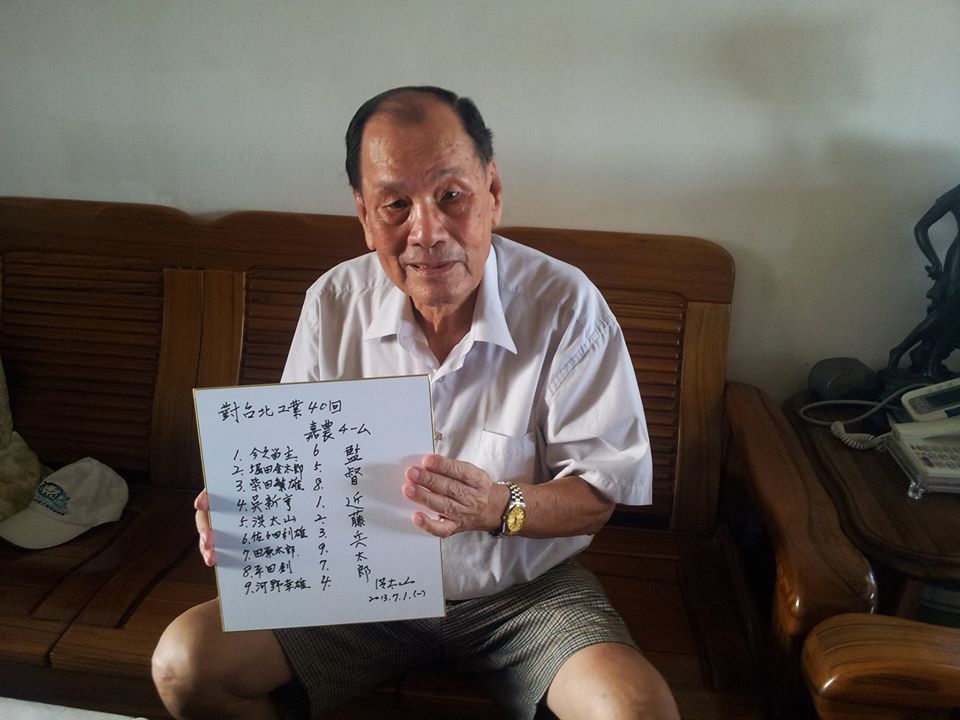 對台北工業40回
嘉農チーム
1. 今久留主. 6
2. 堀田金太郎 5.
3. 柴田繁雄 8.
4. 吳新亨 1.
5. 洪太山 2.
6. 佐々田利雄 3.
7. 田原太郎. 9.
8. 平田 7.
9. 河野幸雄 4.
監督 近藤兵太郎
洪太山
2013.7.1.(一)